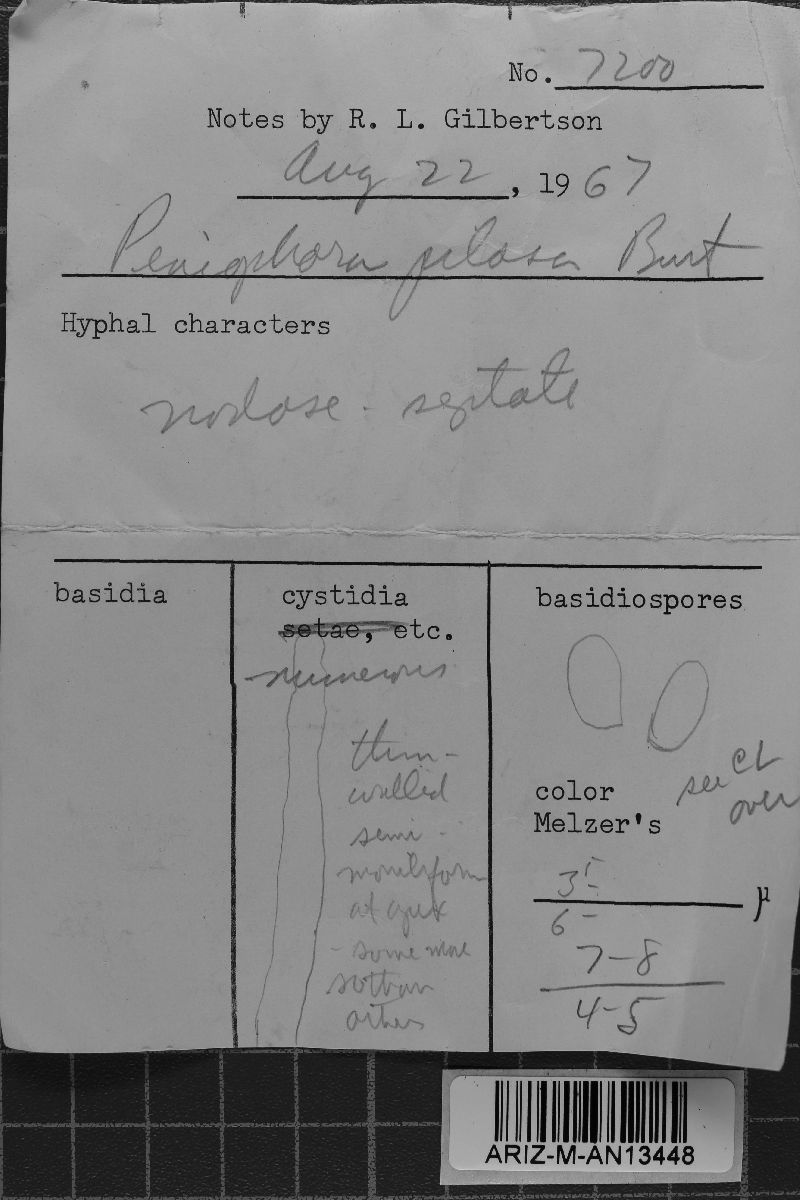 No. 7200
Notes by R. L. Gilbertson
Aug 22, 1967
Peniophora pilosa Burt
Hyphal characters
nodose-septate
basidia
cystidia
setae, etc.
numerous
thin-
walled
semi-
moniliform
at apex
- some more
so than
others
basidiospores
see
over
color
Melzer's
μ
6-
7-8
4-5
ARIZ-M-AN13448